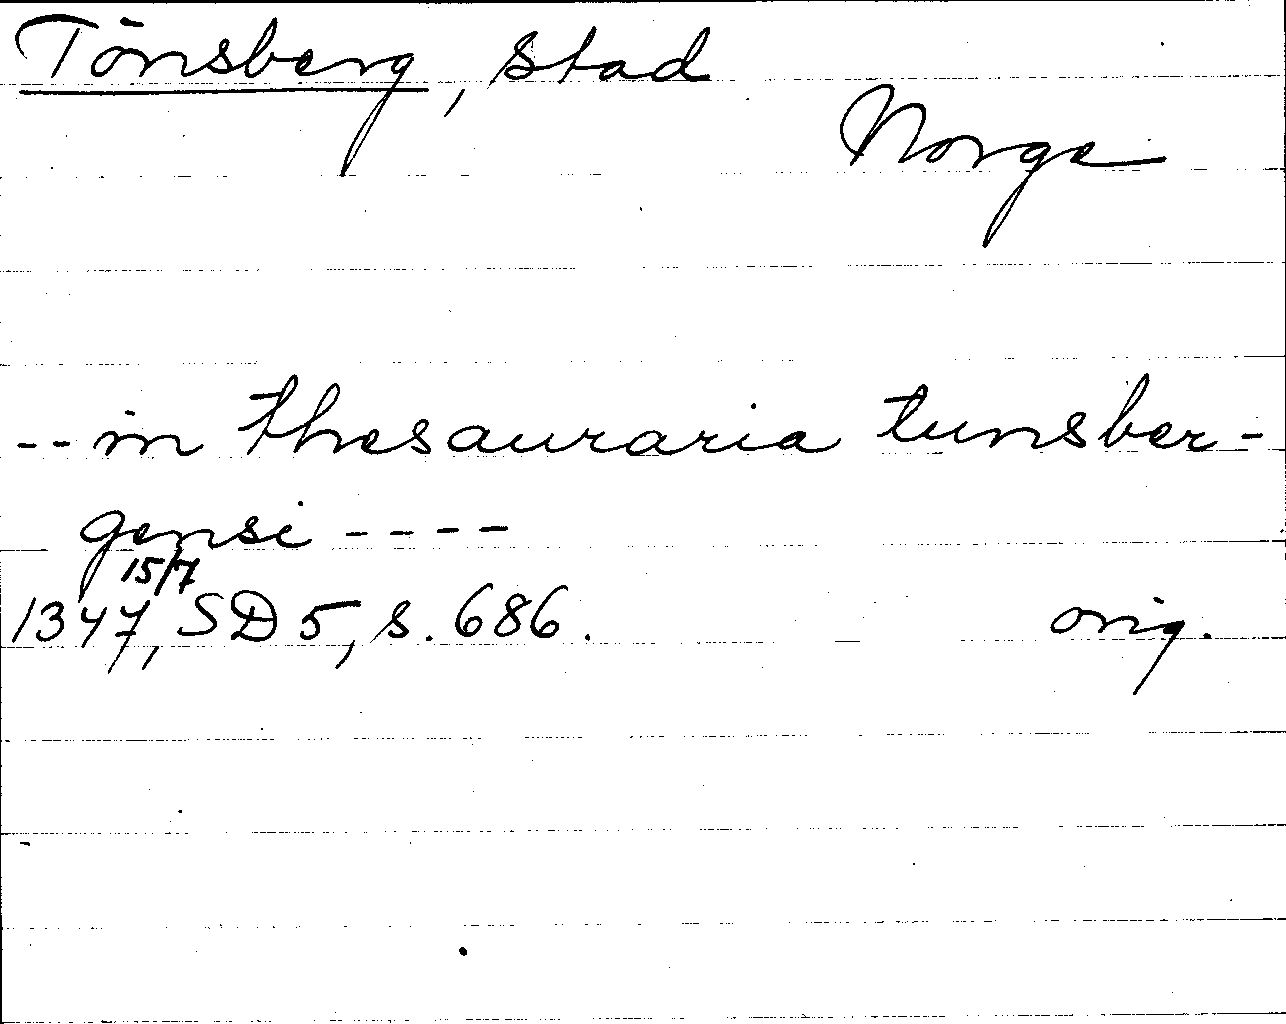 Tönsberg, stad
Norge
-- in thesauraria tunsber-
gensi ----
15/7
1347, SD 5, s. 686. orig.